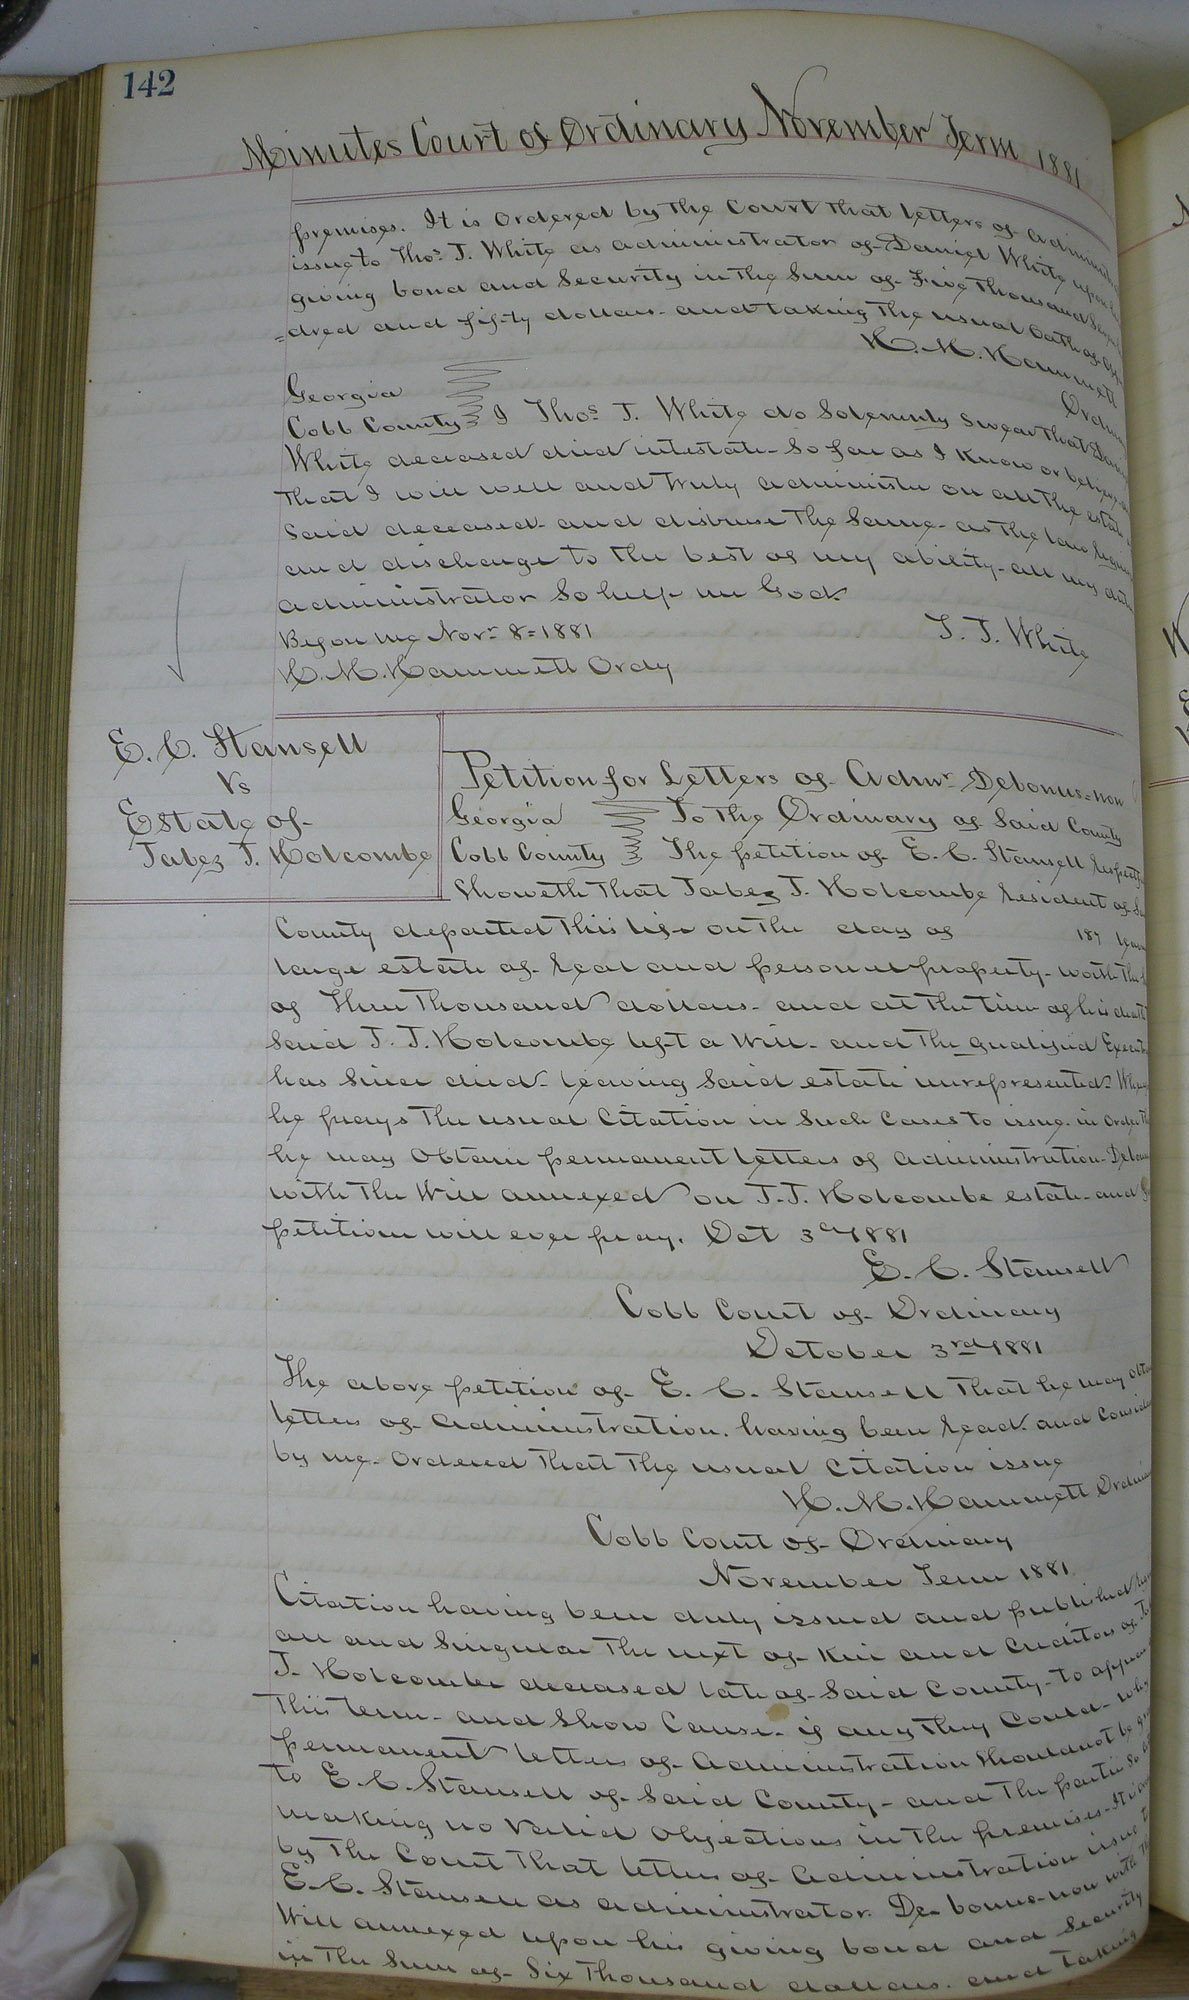 142
Minutes Court of Ordinary November Term 1881
premises. It is Ordered by the Court that letters of
issue to Thos. J. White as administrator of Daniel White upon
giving bond and Security in the Sum of Five Thousand
=dred and fifty dollars - and taking the usual Oath of
H. M. Hammett
Georgia
Cobb County I Thos. J. White do Solemnly Swear that
White deceased died intestate - So far as I Know or believe
that I will well and truly administer on all the estate
Said deceased - and disburse the Same - as the law
and discharge to the best of my ability - all my
administrator So help me God.
Before me Novr. 8=1881
T. J. White
H. M. Hammett Ordy
E. C. Stansell
vs
Estate of
Jabez J. Holcombe
Petition for Letters of Admr. Debonus-non
Georgia To the Ordinary of Said County
Cobb County The petition of E. C. Stansell
Showeth that Jabez J. Holcombe resident of
County departed this life on the day of 187
large estate of real and personal property - worth the
of Three Thousand dollars - and at the time of his death
Said J. J. Holcombe left a Will - and the qualified
has Since died - leaving Said estate unrepresented.
he prays the usual Citation in Such Cases to issue in Order
he may Obtain permanent letters of administration -
with the Will annexed on J. J. Holcombe estate - and
petition will ever pray. Oct 3d 1881
E. C. Stansell
Cobb Court of Ordinary
October 3rd 1881
The above petition of E. C. Stansell that he may
letters of administration. having been read. and
by me. Ordered that the usual Citation issue
H. M. Hammett
Cobb Court of Ordinary
November Term 1881
Citation having been duly issued and published
all and Singular the next of Kin and Creditors of
J. Holcombe deceased late of Said County - to
this term - and Show Cause - if any they Could - why
permanent letters of Administration Should not be
to E. C. Stansell of Said County - and the parties So
making no Valid Objections in the premises - It is
by the Court that letters of Administration issue to
E. C. Stansell as administrator De-bonus-non with the
Will annexed upon his giving bond and Security
in the Sum of Six Thousand dollars. and taking